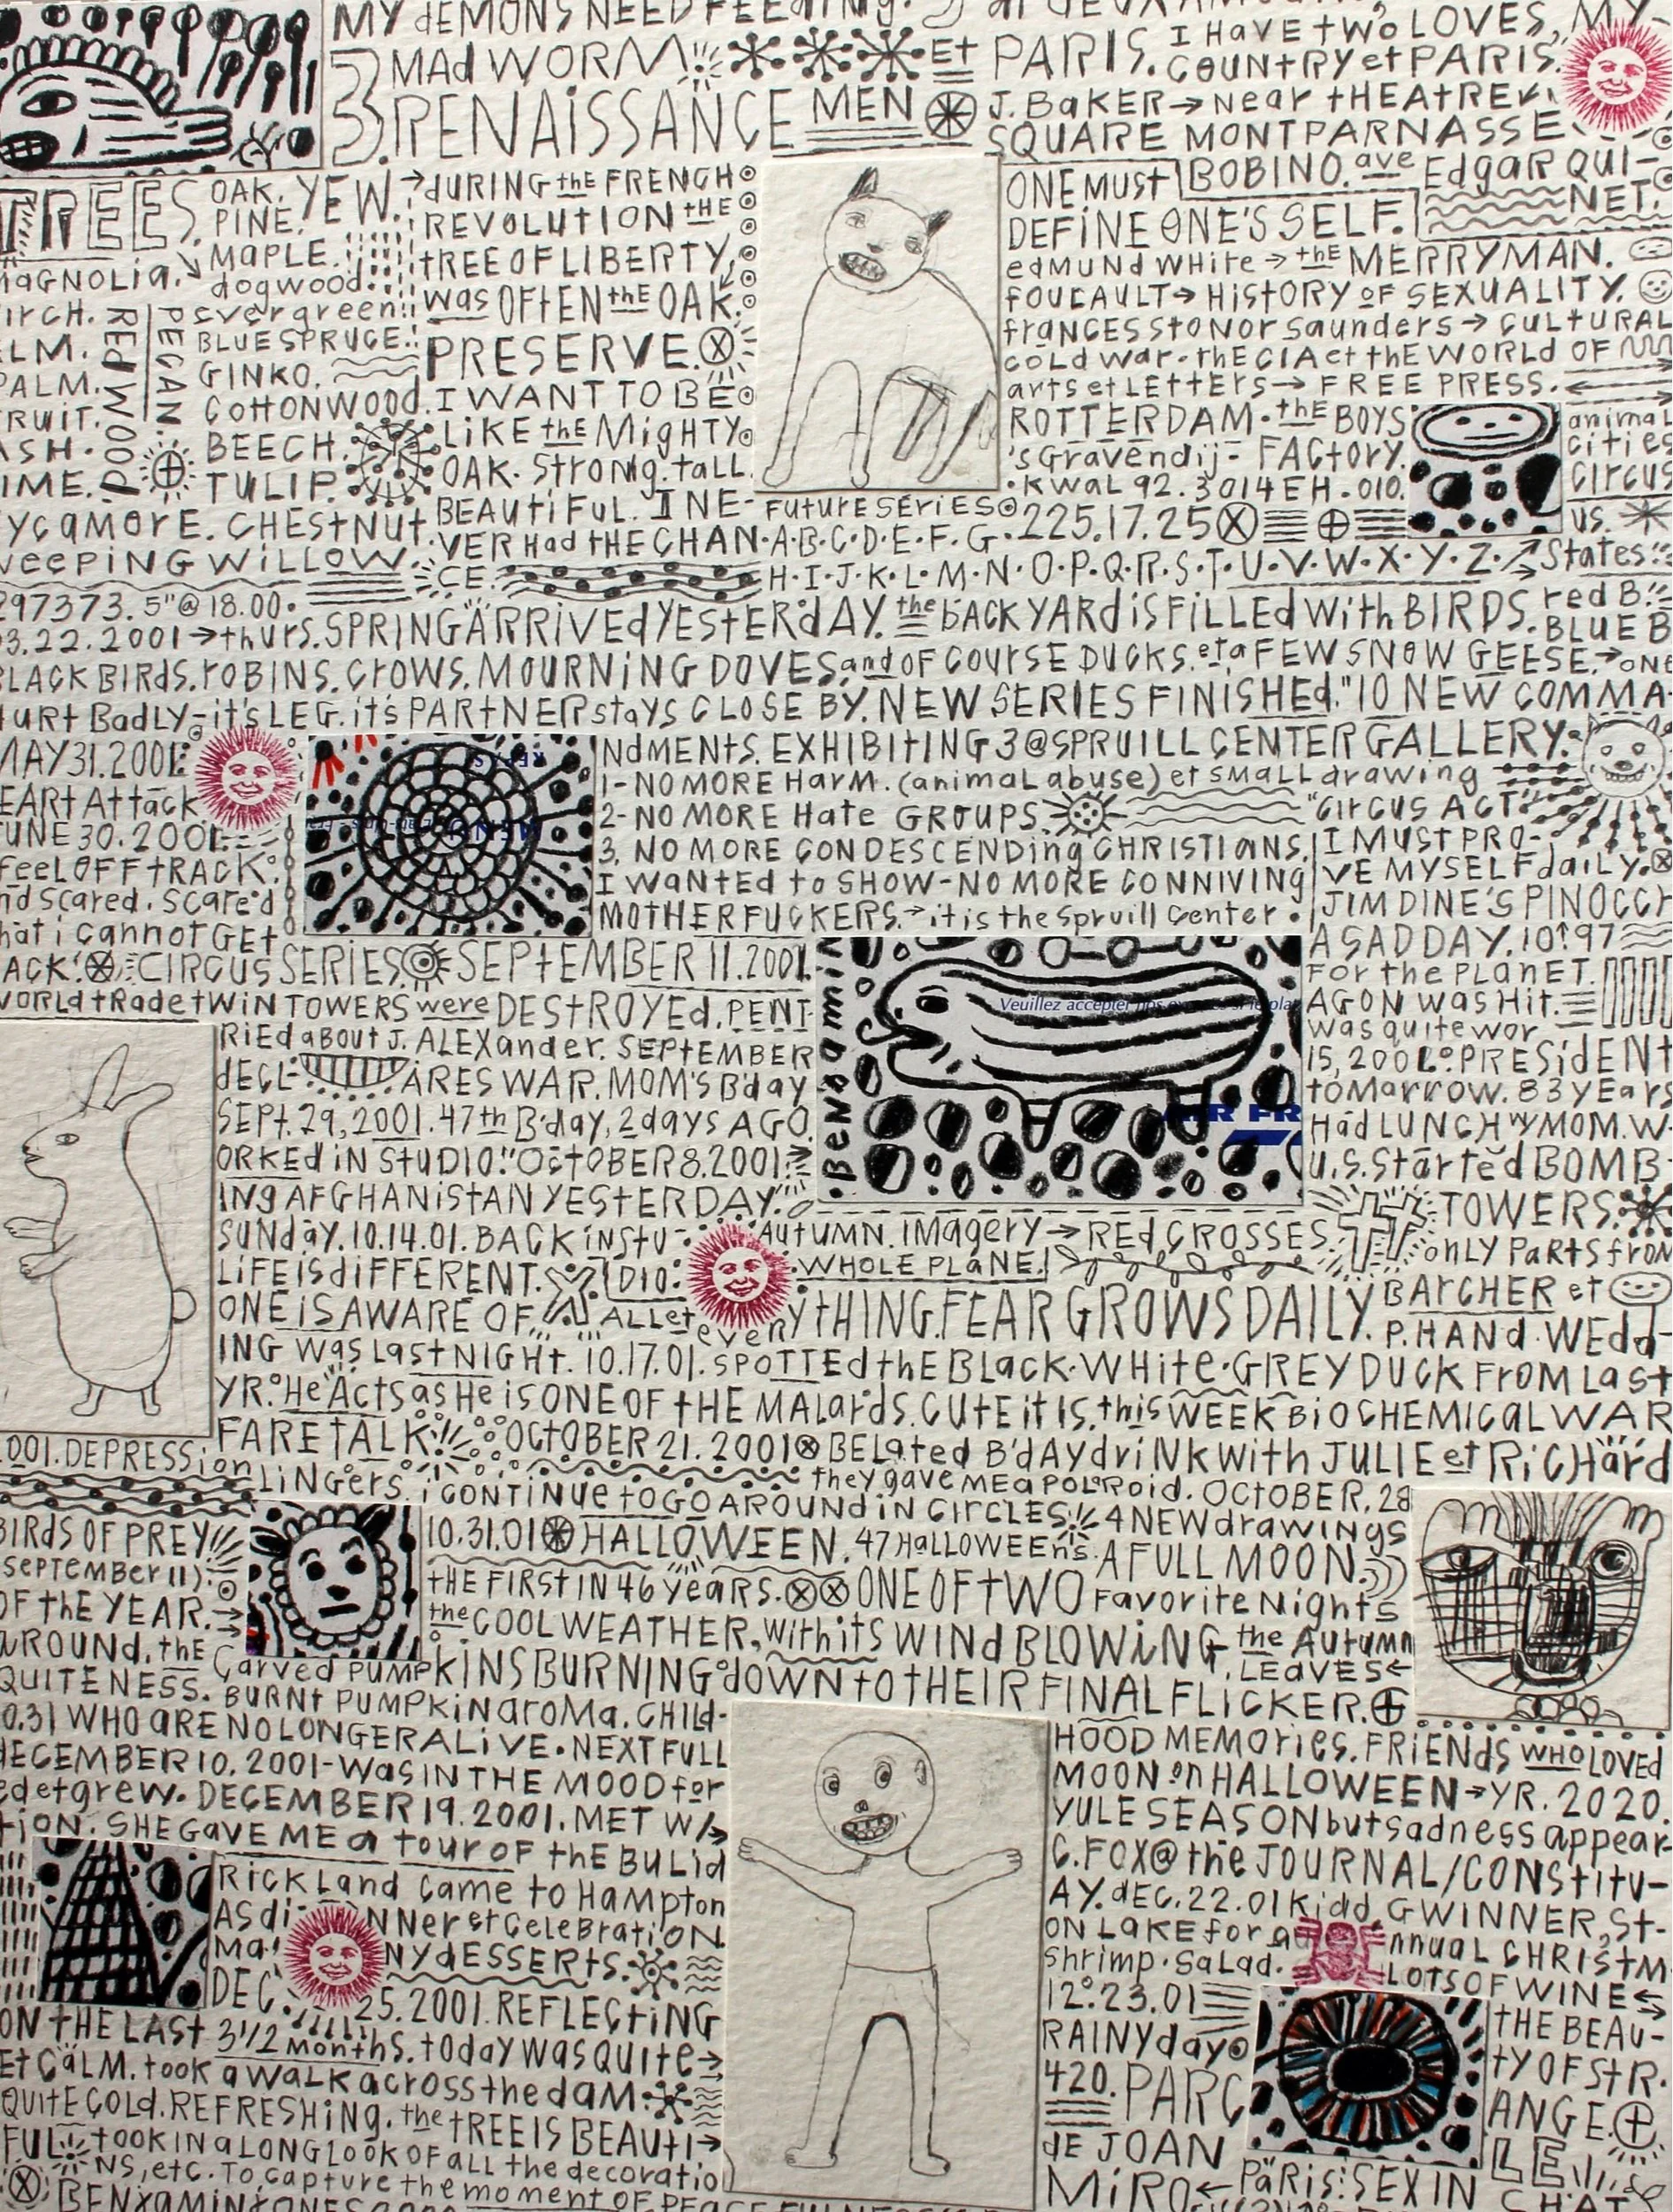 MY dEMONS NEED FEEdING.
MAd WORM
3 RENAiSSANCE MEN
Et PARIS. I HAVE tWO LOVES, MY
COUNtRY et PARIS.
J. BAKER → NeAr tHEAtRE
SQUARE MONTPARNASSE
TREES. OAK. YEW.
PINE.
MAPLE.
MAGNOLIA. dogwood.
evergreen
BLUE SPRUCE.
GINKO.
COttONWOOd.
BEECH.
TULIP.
REdWOOd
PECAN
SYCAMORE. CHEStNUt.
WEEPING WILLOW.
→ dURING the FRENCH
REVOLUTION tHE
tREE OF LIBERTY,
was OFtEN thE OAK.
PRESERVE.
I WANT TO BE
LiKE thE MigHTY
OAK. StrONg. tALL.
BEAUtiFUL. I NE-
VER HAd tHE CHAN
CE.
ONE MUSt BOBINO. ave EdgAR QUI-
NET.
DEFiNE ONE'S SELF.
edMUNd WHite → thE MERRYMAN.
FOUCAULT → HIStORY OF SEXUALITY.
frANCES StONOr SAUNDErS → CULtURAL
COLd WAr - thE CIA et thE WORLD OF
ArtS et LEttERS → FREE PRESS.
ROTTERDAM. thE BOYS
'sGravendij- FACtORY.
KWAL 92. 3014 EH. 010.
225.17.25
animal
cities
circus
US.
States
FutUrE SEriES
A.B.C.D.E.F.G.
H.I.J.K.L.M.N.O.P.Q.R.S.T.U.V.W.X.Y.Z.
297373. 5"@ 18.00.
03.22.2001 → thurs. SPRING ARRIVEd YEStERdAY. the bACKYARd iS FILLEd With BIRDS. red B
BLUE B
BLACK BIRdS. rOBINS. CrOWS. MOURNiNG DOVES and OF COUrSE DUCKS. et a FEW SNOW GEESE. → ONE
HURt BAdLY - it'S LEG. it'S PARtNER StaYS CLOSE BY. NEW SERIES FINISHEd. "10 NEW COMMA-
NdMENtS. EXHIBItING 3 @ SPRUILL CENTER GALLERY.
1- NO MORE HARM. (animal abuse) et SMALL drawing
"CIRCUS ACT".
2- NO MORE HAte GROUPS.
3. NO MORE CONDESCENDing CHRISTIANS.
I WANtEd to SHOW - NO MORE CONNIVING
MOTHERFUCKERS. → it is the Spruill Center.
I MUSt PRO-
VE MYSELF daiLY.
JIM DINE'S PINOCCH
MAY 31. 2001.
HEARt Attack
JUNE 30. 2001.
feel OFF tRACK
and Scared. Scared
that i CANNOt GEt
BACK. CIRCUS SERIES. SEPtEMBER 11. 2001. A SAD DAY. 10:97
FOr the PLANET.
WORLd tRAde tWiN TOWERS were DEStROYEd. PENT
AGON WAS Hit.
WAS quite wor
RIEd about J. ALEXander. SEPtEMBER
15, 2001. PRESidENt
dECL ARES WAR. MOM'S B'day
toMarrow. 83 yEars
SEPt. 29, 2001. 47th B'day, 2 days AGO.
HAd LUNCH w/ MOM. W-
ORKEd iN StUDIO. "OCtOBER 8. 2001.
U.S. StArtEd BOMB-
INg AFGHANiStAN YEStERDAY.
TOWERS.
Benjamin
Veuillez accepter nos
SUNdAY. 10.14.01. BACK iN StU-
DIO.
AUtUMN. IMAgery → REd CROSSES
ONLY PARtS froM
WHOLE PLANE.
LiFE iS diFFERENT.
ONE iS AWARE OF ALL et everYtHING. FEAR GROWS DAILY.
BArCHER et
P. HANd. WEdd-
ING WAS LAST NIGHT. 10.17.01. SPOTTEd thE BLACK-WHite-GREY DUCK FROM LASt
YR. "He ActS as He iS ONE OF tHE MALArdS. CUtE it IS. this WEEK BiOCHEMICAL WAR
FARE TALK. OCtOBER 21. 2001 BELAted B'dAY drINK With JULIE et RiCHArd
they gAVE ME A POLAROid. OCTOBER. 28
2001. DEPRESSion
LINGERS. i CONTINUE to GO AROUNd iN CIRCLES. 4 NEW drAWINGS
BIRdS OF PREY
(SEPTEMBER 11)
10.31.01 HALLOWEEN. 47 HALLOWEEnS. A FULL MOON.
tHE FIRSt IN 46 YEARS. ONE OF tWO FAVORITE NightS
OF thE YEAR. the COOL WEATHER, With itS WINd BLOWiNG the AUtUMN
LEAVES
AROUNd. tHE
QUITENESS. CArVEd PUMPKINS BURNING dOWN tO tHEIR FINAL FLICKER.
BURNt PUMPKiN AROMA. CHILd-
HOOD MEMORiES. FRiENdS WHO LOVED
10.31 WHO ARE NO LONGER ALiVE. NEXT FULL
MOON on HALLOWEEN → YR. 2020.
dECEMBER 10. 2001 - WAS IN THE MOOD for
YULE SEASON but SAdNESS APPEAR
ed et grew. DECEMBER 19. 2001. MET W/
C. FOX @ the JOURNAL/CONStitU-
tiON. SHE GAVE ME A tOUr OF thE BULid
RICKLANd CAME tO HAMPtON
AY. dEC. 22. 01 Kidd, GWINNER, St-
ON LAKE for A nnUAL CHRIStM
AS diNNer et CELEBRAtiON
shrimp. SALAd. LOTS OF WINE
MA NY dESSERtS.
12.23.01
DEC. 25. 2001. REFLECtiNG
RAINY dAY
ON tHE LASt 3 1/2 MONthS. tODAY WAS QUITE
ET CALM. tOOK A WALK ACROSS the dAM.
QUItE COLd. REFRESHING. the tREE IS BEAUTI
FUL. tOOK IN A LONG LOOK OF ALL the decoratio
NS, etc. TO CAPtURE the MOMENT OF PEACE
420. PARC
dE JOAN
MiRO ← PARIS: SEX IN
tHE BEAU-
tY OF StR-
ANGE.
LE